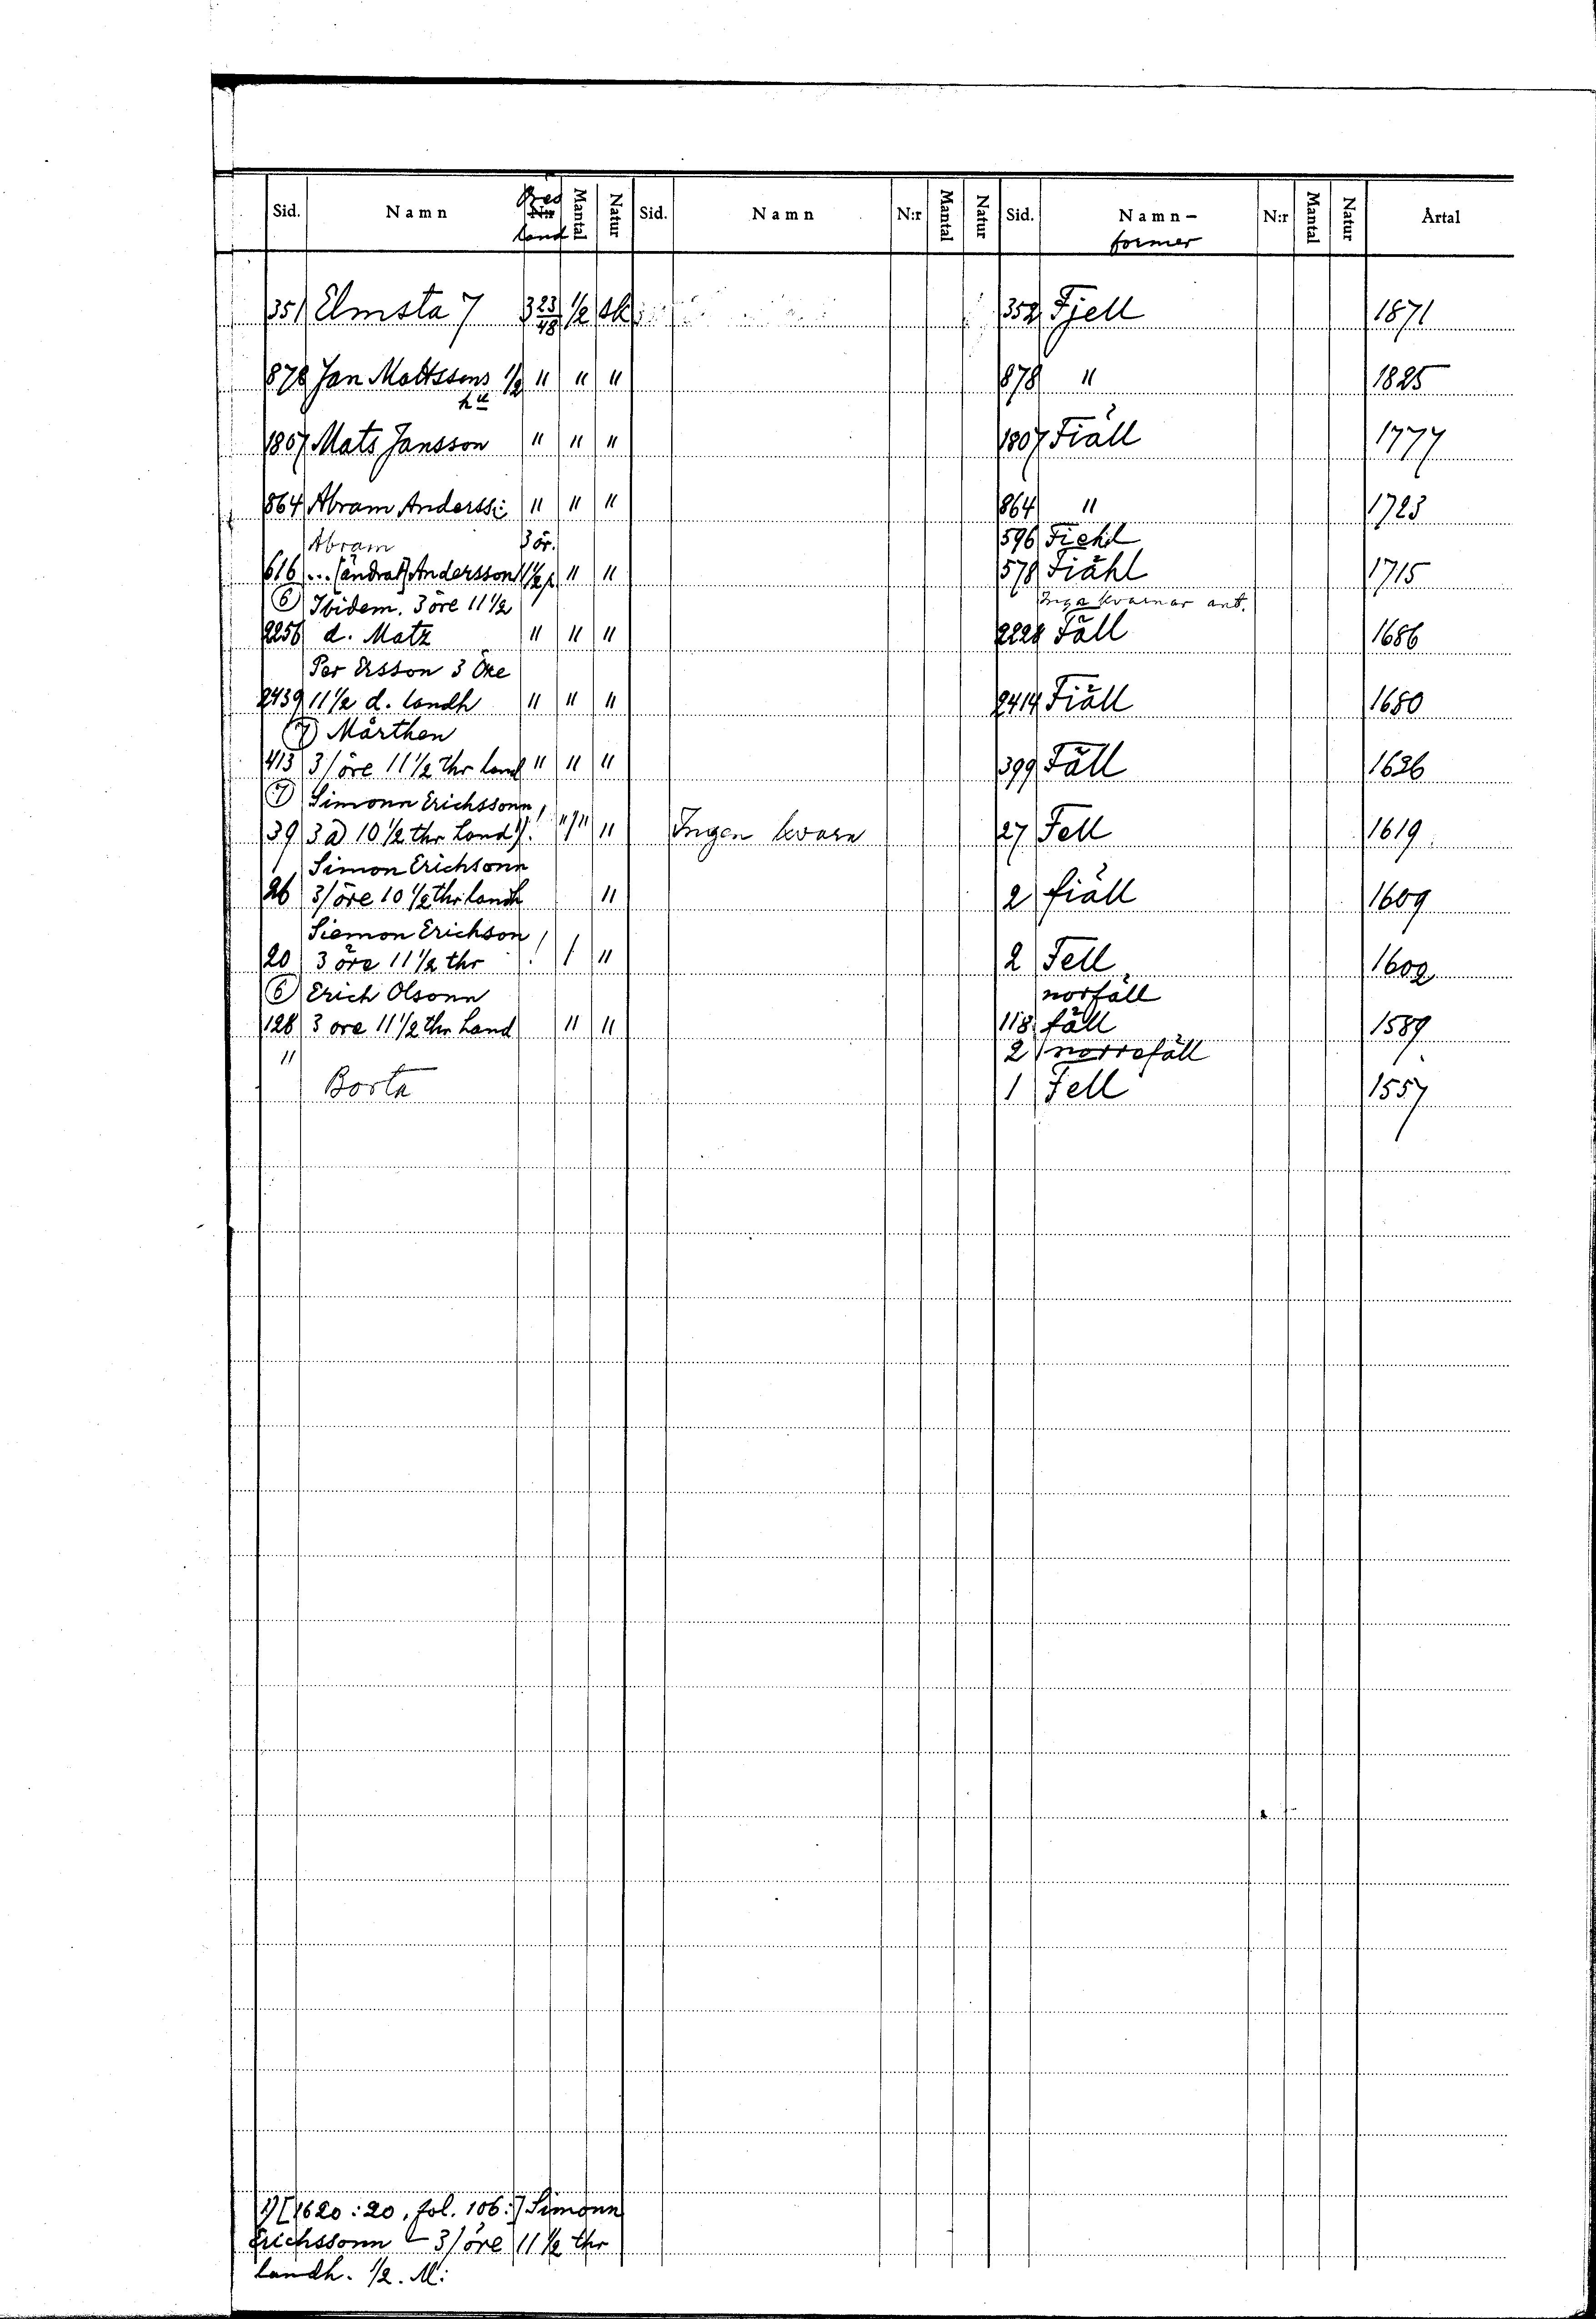 Sid. Namn Bes N:r land Mantal Natur Sid. Namn N:r Mantal Natur Sid. Namn- former N:r Mantal Natur Årtal
351 Elmsta 7 3 23/48 1/2 sk 352 Fjell 1871
878 Jan Mattssons 1/2 " " " 878 " 1825
1807 Mats Jansson " " " 1807 Fiäll 1777
864 Abram Anderss: " " " 864 " 1723
Abram 3 ör. 596 Fiehl
616 ... [ändrat] Andersson 11 1/2 p " " 578 Fiähl 1715
(6) Ibidem. 3 öre 11 1/2 Inga kvarnar ant.
2256 d. Matz " " " 2228 Fäll 1686
Per Ersson 3 Öre
2439 11 1/2 d. landh " " " 2414 Fiäll 1680
(7) Mårthen
413 3/öre 11 1/2 thr land " " " 399 Fäll 1636
(7) Simonn Erichssonn
39 3 ö 10 1/2 thr Land 1) ! " 1) " " Ingen kvarn 27 Fell 1619
Simon Erichsonn
26 3/öre 10 1/2 thr landh " 2 fiäll 1609
Siemon Erichson
20 3 öre 11 1/2 thr ! / " 2 Fell 1602
(6) Erich Olsonn norfäll
128 3 ore 11 1/2 thr Land " " 118 fäll 1589
" 2 norrefäll
Borta 1 Fell 1557
1) [1620:20, fol. 106:] Simonn
Erichssonn – 3/öre 11 1/2 thr
landh. 1/2. M: